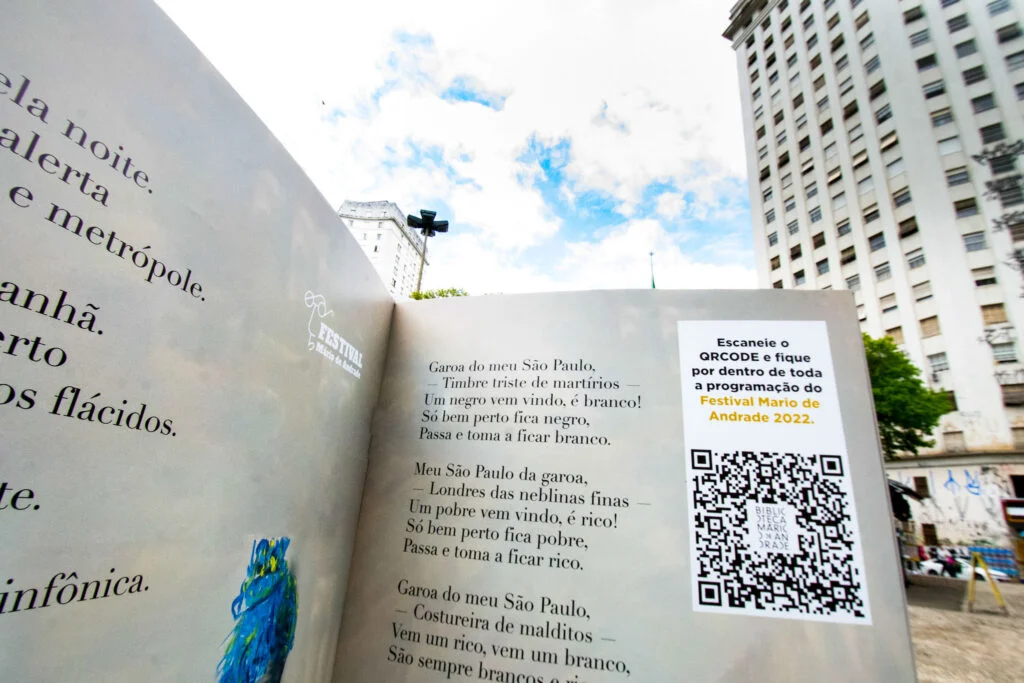 ela noite.
alerta
e e metrópole.
anhã.
erto
os flácidos.
te.
infônica.
FESTIVAL
Mário de Andrade
Garoa do meu São Paulo,
— Timbre triste de martírios —
Um negro vem vindo, é branco!
Só bem perto fica negro,
Passa e toma a ficar branco.
Meu São Paulo da garoa,
— Londres das neblinas finas —
Um pobre vem vindo, é rico!
Só bem perto fica pobre,
Passa e toma a ficar rico.
Garoa do meu São Paulo,
— Costureira de malditos —
Vem um rico, vem um branco,
São sempre brancos e
Escaneie o
QRCODE e fique
por dentro de toda
a programação do
Festival Mario de
Andrade 2022.
BIBLIO
TECA
MÁRIO
DE AN
DRADE